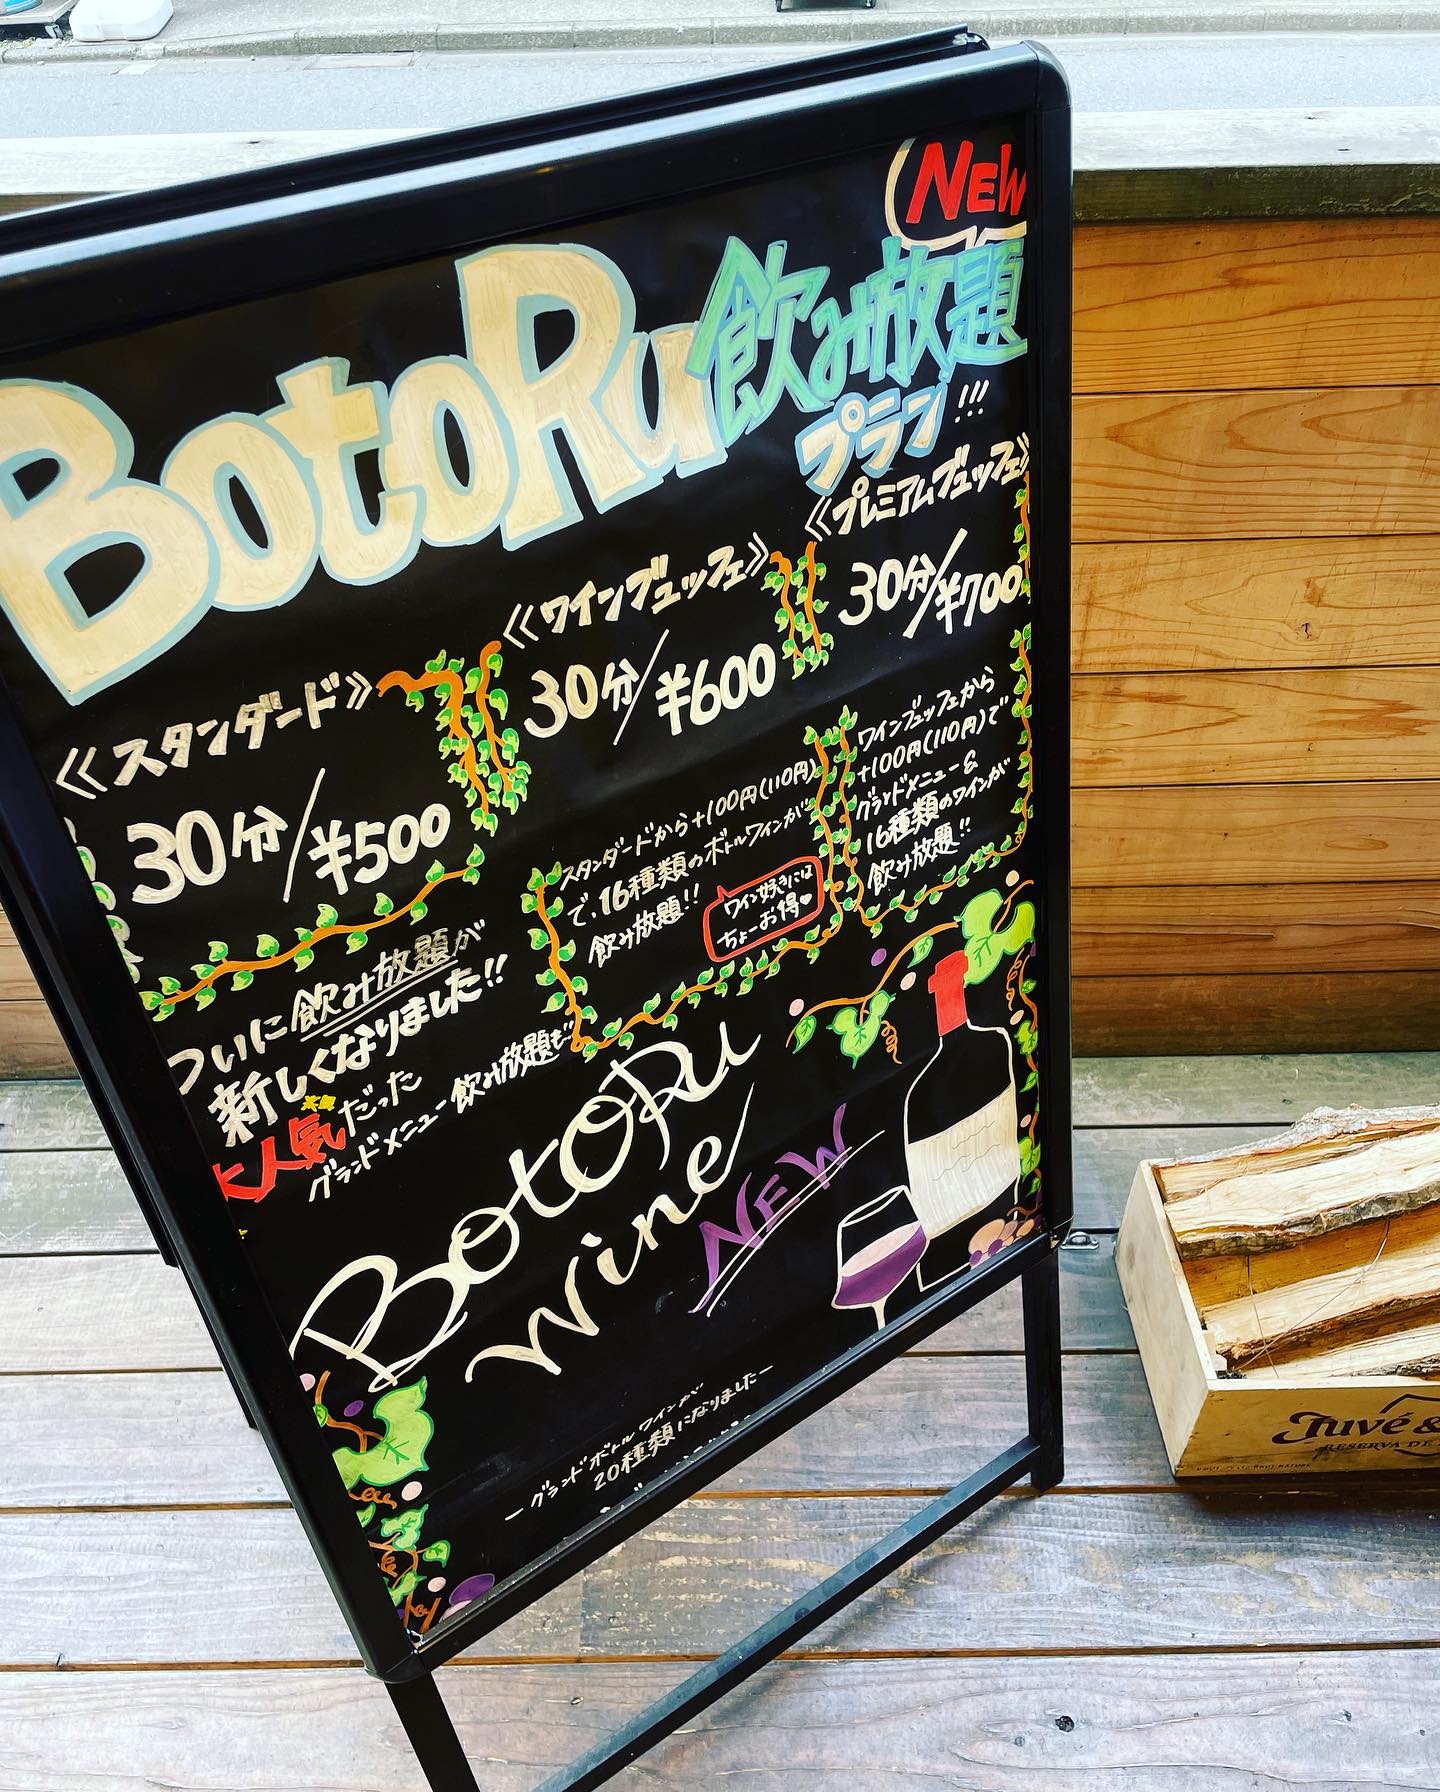 NEW
BotoRu 飲み放題
プラン!!!
《スタンダード》
30分/¥500
《ワインブュッフェ》
30分/¥600
スタンダードから+100円(110円)
で、16種類のボトルワインが
飲み放題!!
ワイン好きには
ちょーお得♥
《プレミアムブュッフェ》
30分/¥700
ワインブュッフェから
+100円(110円)で
グランドメニュー&
16種類のワインが
飲み放題!!
ついに飲み放題が
新しくなりました!!
大人気だった
グランドメニュー飲み放題も…
BotoRu
wine
NEW
ーグランドボトルワインが
20種類になりましたー
Juvé &
RESERVA DE